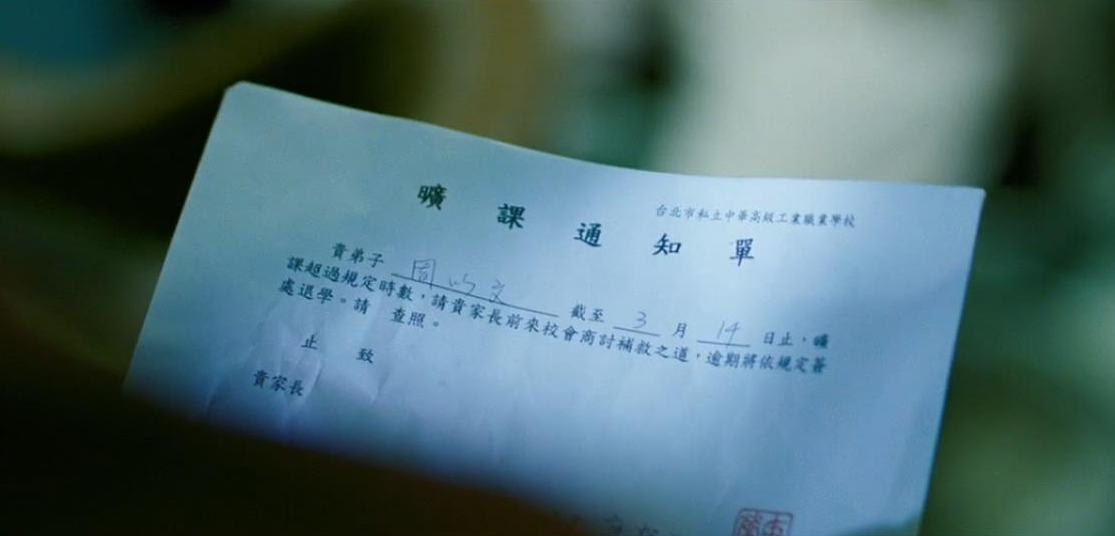 台北市私立中華高級工業職業學校
曠課通知單
貴弟子 周以文 截至 3 月 14 日止，曠
課超過規定時數，請貴家長前來校會商討補救之道，逾期將依規定簽
處退學。請 查照。
止 致
貴家長